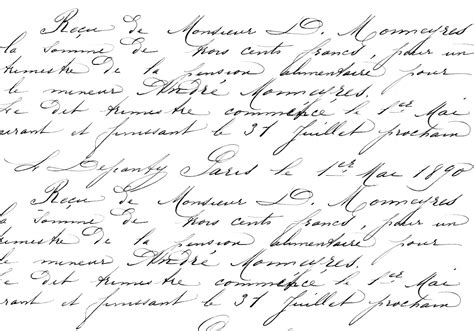 Reçu de Monsieur D. Monneyres
la somme de trois cents francs, pour un
trimestre de la pension alimentaire pour
le mineur André Monneyres.
Le dit trimestre commence le 1er Mai
et finissant le 31 Juillet prochain
Paris le 1er Mai 1890
Reçu de Monsieur D. Monneyres
la somme de trois cents francs, pour un
trimestre de la pension alimentaire pour
le mineur André Monneyres.
Le dit trimestre commence le 1er Mai
et finissant le 31 Juillet prochain